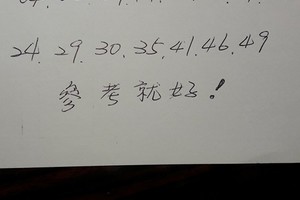 24. 29. 30. 35. 41. 46. 49
參考就好!